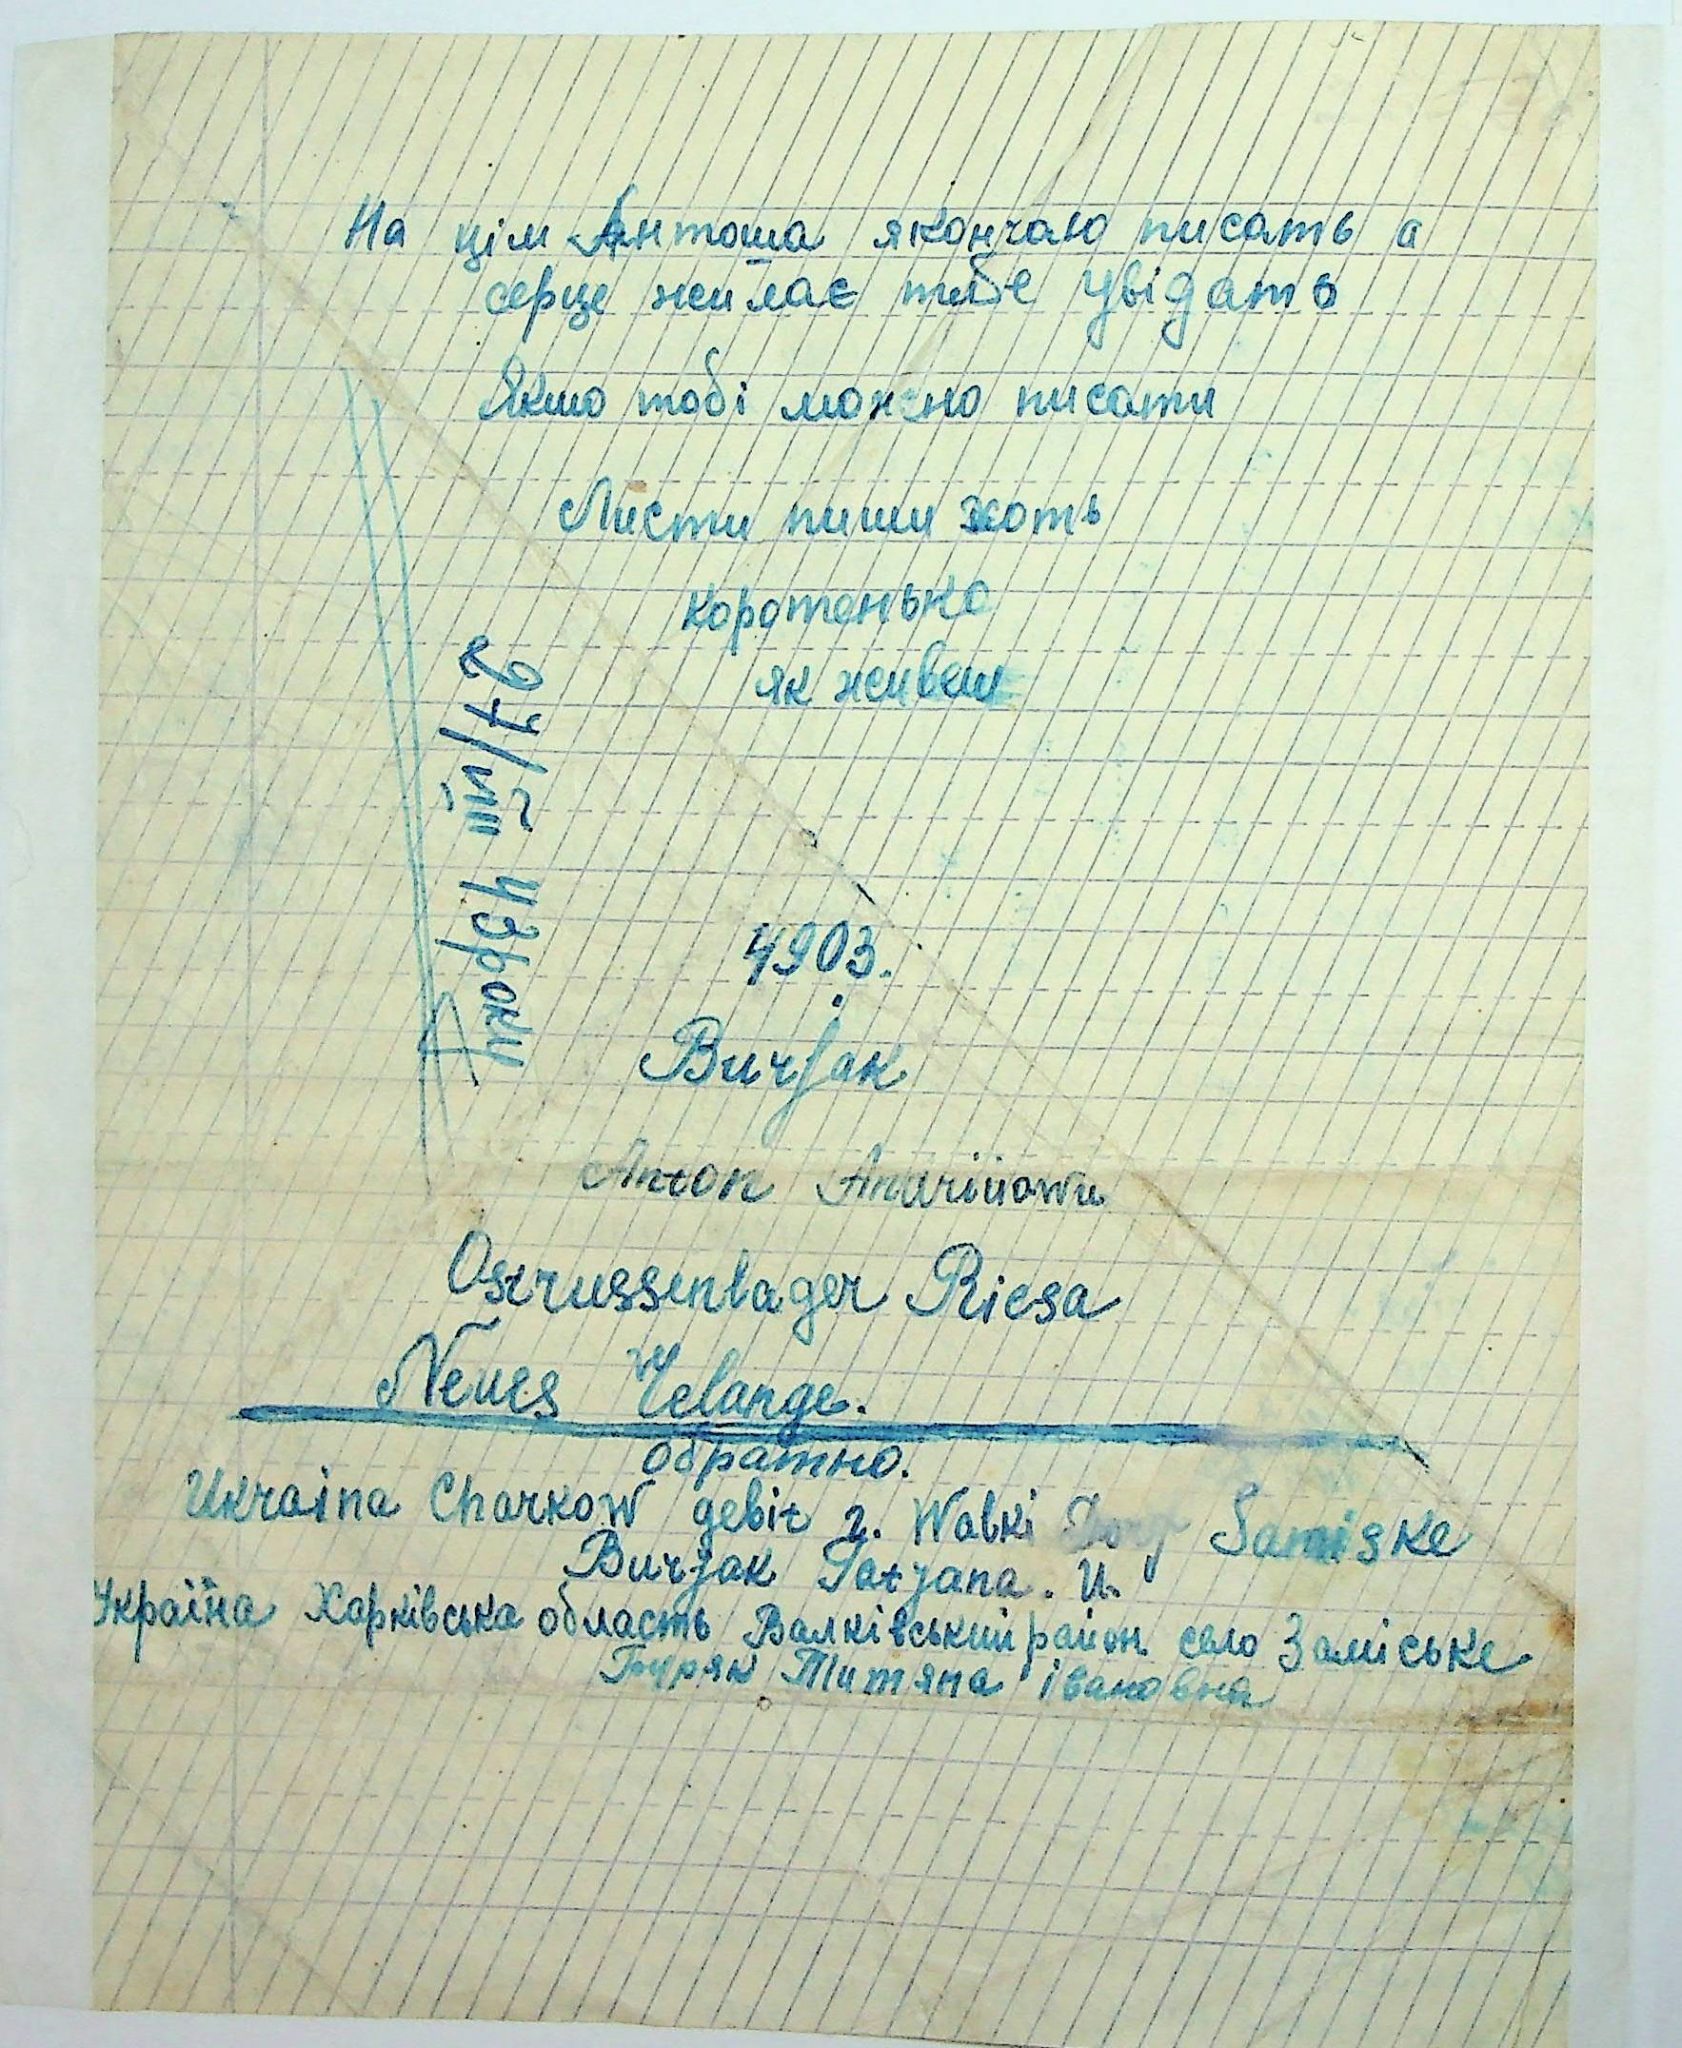 На цім Антоша якончаю писать а
серце жилає тебе увідать
Якшо тобі можно писати
Листи пиши хоть
коротенько
як живеш
27/VIII 43 року
4903.
Burjak
Anton
Ostrussenlager Riesa
Neues
обратно.
Ukraina Charkow gebit r. Walki Dorf Samiske
Burjak Tatjana. U.
Україна Харківська область Валківський район село Заміське
Буряк Титяна івановна